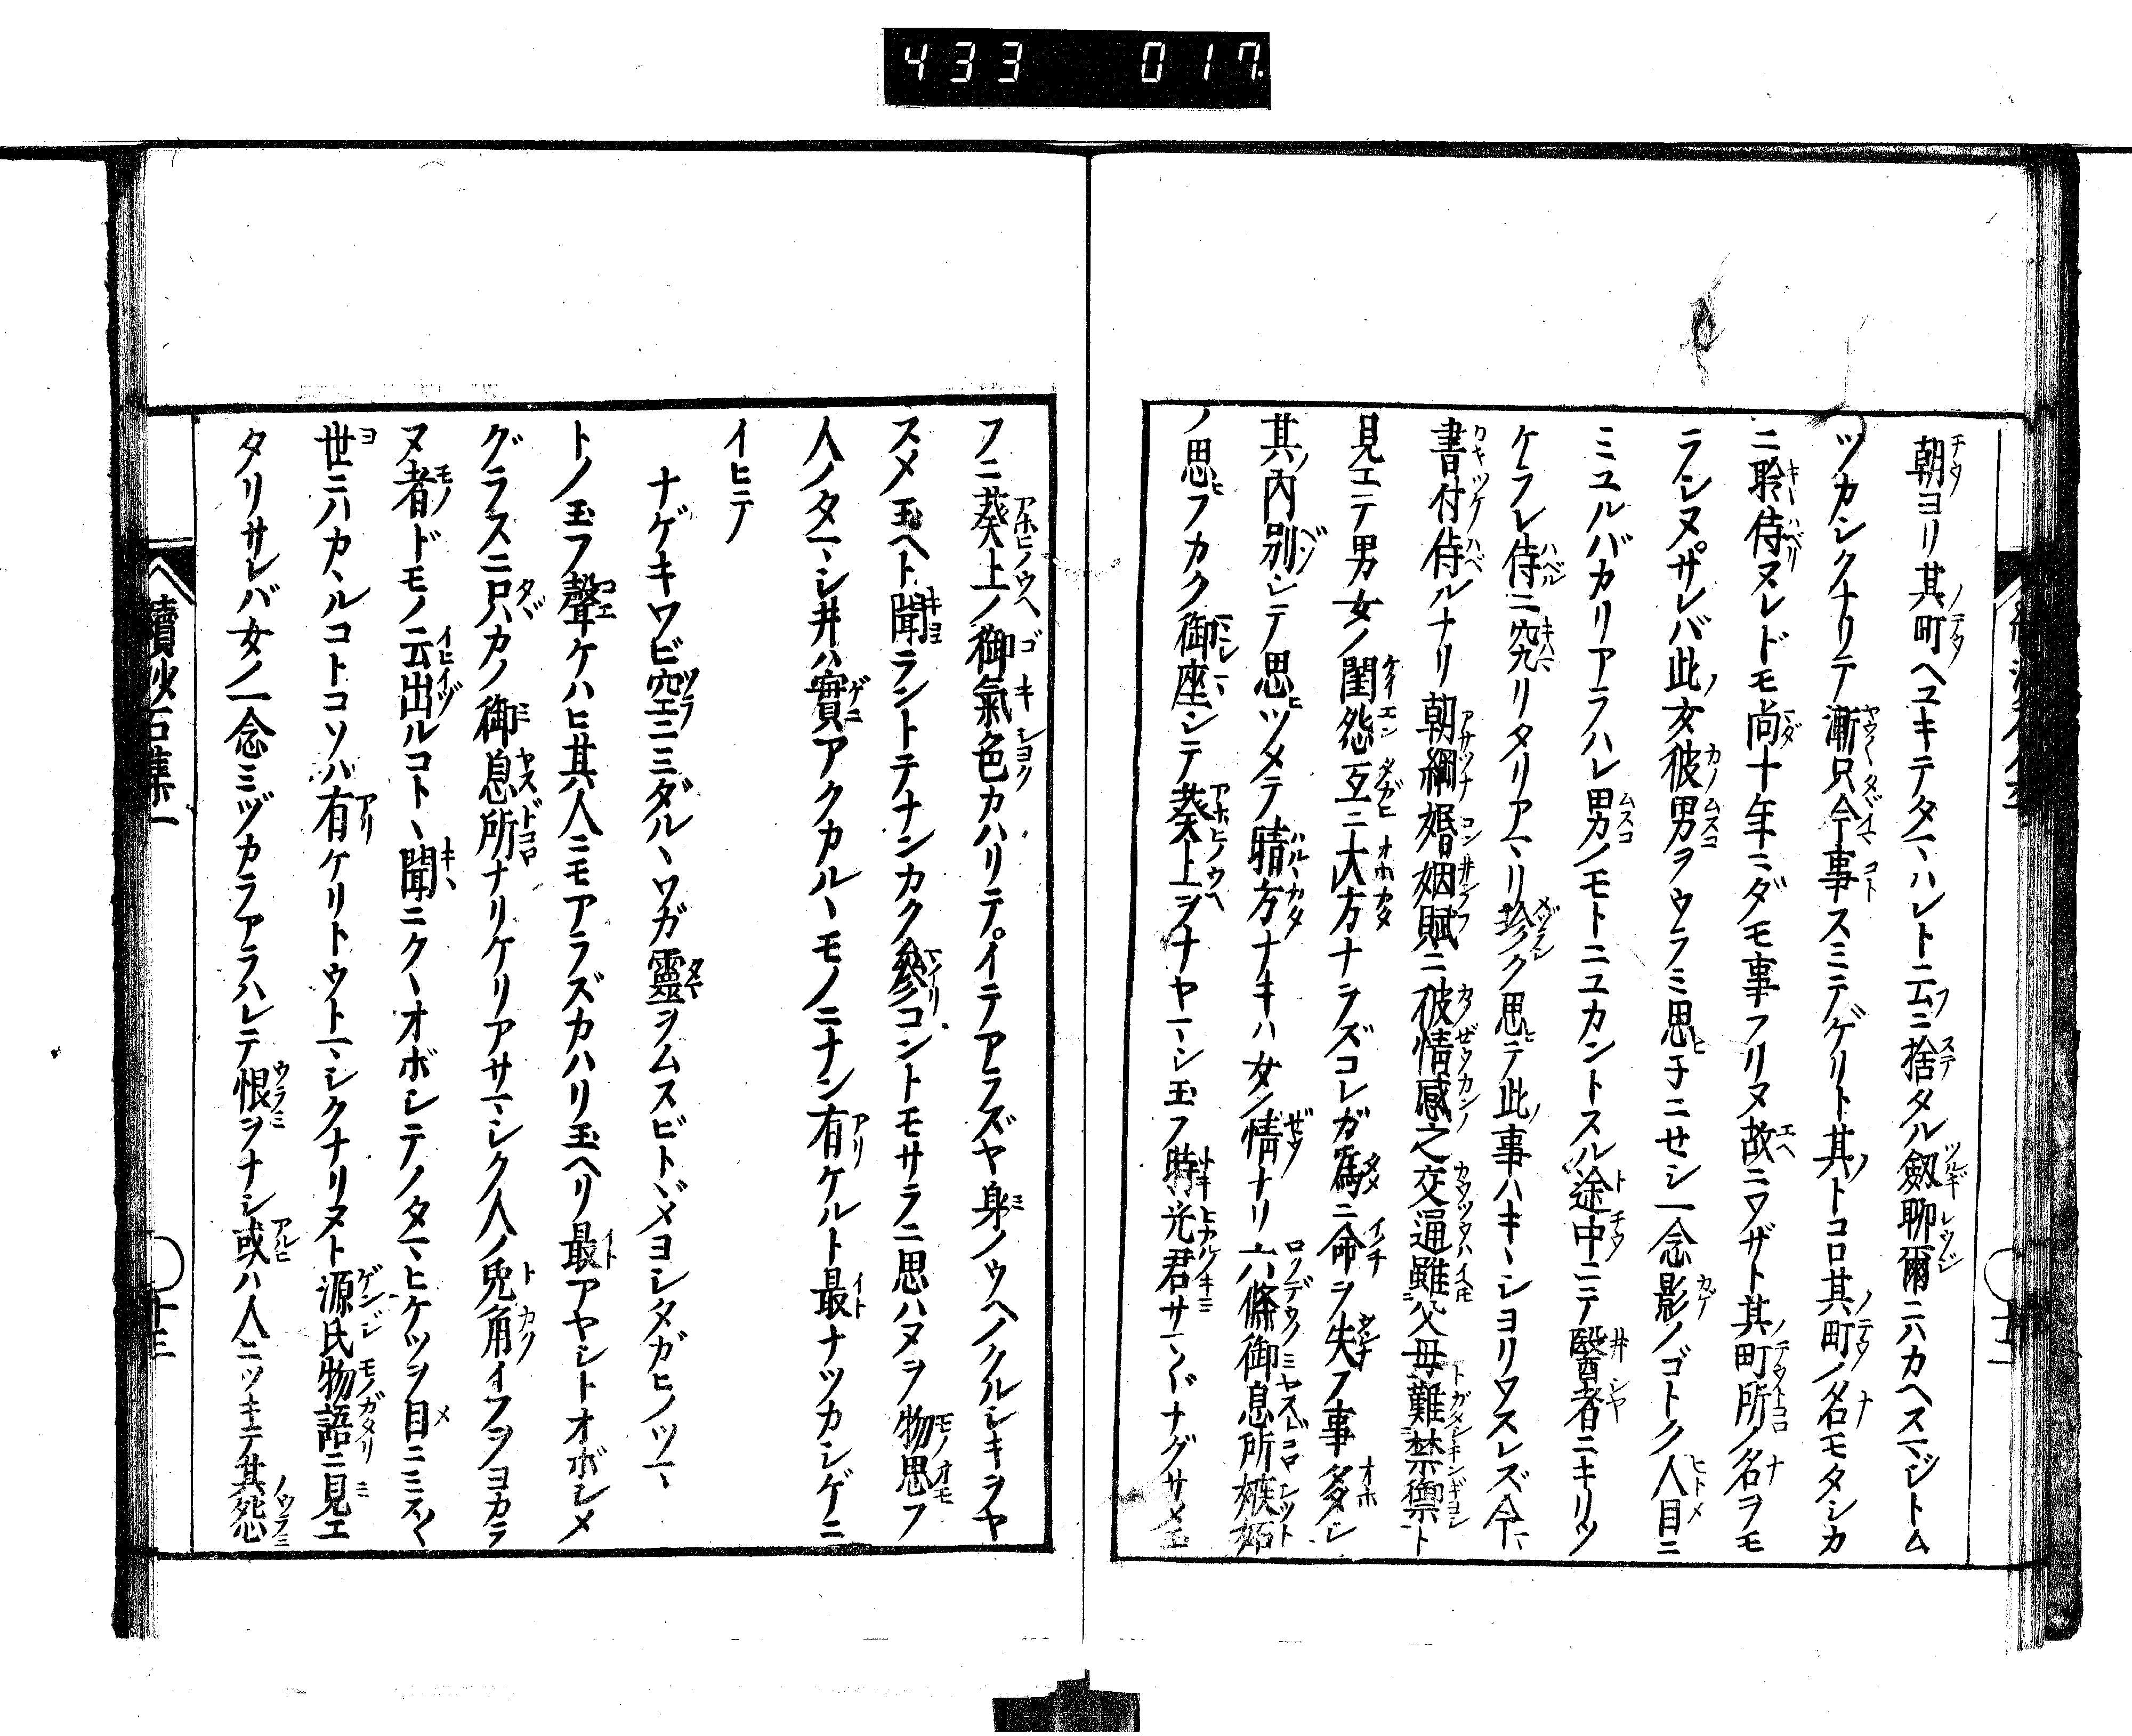 433 017.
朝ヨリ其町ヘユキテタマハレト云ニ捨タル劔聊爾ニハカヘスマジトム
ツカシクナリテ漸只今事スミテゲリト其トコロ其町ノ名モタシカ
ニ聆侍ヌレドモ尚十年ニダモ事フリヌ故ニワザト其町所ノ名ヲモ
ラシヌサレバ此女彼男ヲウラミ思子ニセシ一念影ノゴトク人目ニ
ミユルバカリアラハレ男ノモトニユカントスル途中ニテ醫者ニキリツ
ケラレ侍ニ究リタリアマリ珍ク思テ此事ハキヽシヨリワスレズ今ニ
書付侍ルナリ朝綱婚姻賦ニ彼情感之交通雖父母難禁禦ト
見エテ男女ノ閨怨互ニ大方ナラズコレガ爲ニ命ヲ失フ事多シ
其内別シテ思ツメテ晴方ナキハ女ン情ナリ六條御息所嫉妬
ノ思フカク御座シテ葵上ヲナヤマシ玉フ時光君サマ〲ナグサメ玉
フニ葵上ノ御氣色カハリテイテアラズヤ身ノウヘノクルシキヲヤ
スメ玉ヘト聞ラントテナンカク參コントモサラニ思ハヌヲ物思フ
人ノタマシ井ハ實アクカルヽモノニナン有ケルト最ナツカシゲニ
イヒテ
ナゲキワビ空ニミダルヽワガ靈ヲムスビトヾメヨシタガヒノツマ
トノ玉フ聲ケハヒ其人ニモアラズカハリ玉ヘリ最アヤシトオボシメ
グラスニ只カノ御息所ナリケリアサマシク人ノ兎角イフヲヨカラ
ヌ者ドモノ云出ルコトヽ聞ニクヽオボシテノタマヒケツヲ目ニミス〱
世ニハカヽルコトコソハ有ケリトウトマシクナリヌト源氏物語ニ見エ
タリサレバ女ノ一念ミヅカラアラハレテ恨ヲナシ或ハ人ニツキテ其怨
續沙石集一
十三